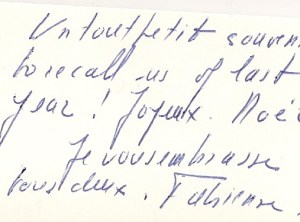 Un tout petit souven
to recall us of last
year! Joyeux. Noë
Je vous embrasse
tous deux. Fabienne